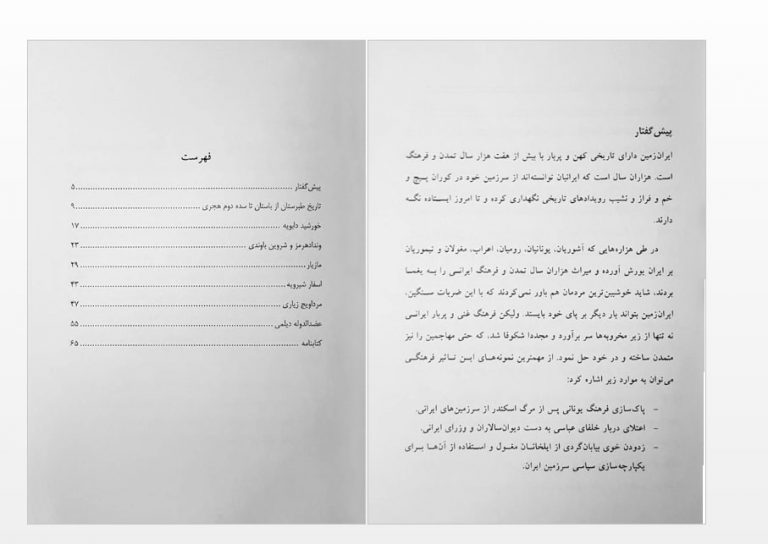 فهرست
پیش‌گفتار ........ ۵
تاریخ طبرستان از باستان تا سده دوم هجری ........ ۹
خورشید دابویه ........ ۱۷
ونداد هرمز و شروین باوندی ........ ۲۳
مازیار ........ ۲۹
اسفار شیرویه ........ ۴۳
مرداویج زیاری ........ ۴۷
عضدالدوله دیلمی ........ ۵۵
کتابنامه ........ ۶۵
پیش‌گفتار
ایران‌زمین دارای تاریخی کهن و پربار با بیش از هفت هزار سال تمدن و فرهنگ
است. هزاران سال است که ایرانیان توانسته‌اند از سرزمین خود در کوران پسیچ و
خم و فراز و نشیب رویدادهای تاریخی نگهداری کرده و تا امروز ایستاده نگه
دارند.
در طی هزاره‌هایی که آشوریان، یونانیان، رومیان، اعراب، مغولان و تیموریان
بر ایران یورش آورده و میراث هزاران سال تمدن و فرهنگ ایرانی را به یغما
بردند، شاید خوشبین‌ترین مردمان هم باور نمی‌کردند که با این ضربات سنگین،
ایران‌زمین بتواند بار دیگر بر پای خود بایستد. ولیکن فرهنگ غنی و پربار ایرانی
نه تنها از زیر مخروبه‌ها سر برآورد و مجددا شکوفا شد، که حتی مهاجمین را نیز
متمدن ساخته و در خود حل نمود. از مهمترین نمونه‌های این تاثیر فرهنگی
می‌توان به موارد زیر اشاره کرد:
- پاک‌سازی فرهنگ یونانی پس از مرگ اسکندر از سرزمین‌های ایرانی.
- اعتلای دربار خلفای عباسی به دست دیوان‌سالاران و وزرای ایرانی.
- زدودن خوی بیابان‌گردی از ایلخانان مغول و استفاده از آن‌ها برای
یکپارچه‌سازی سیاسی سرزمین ایران.